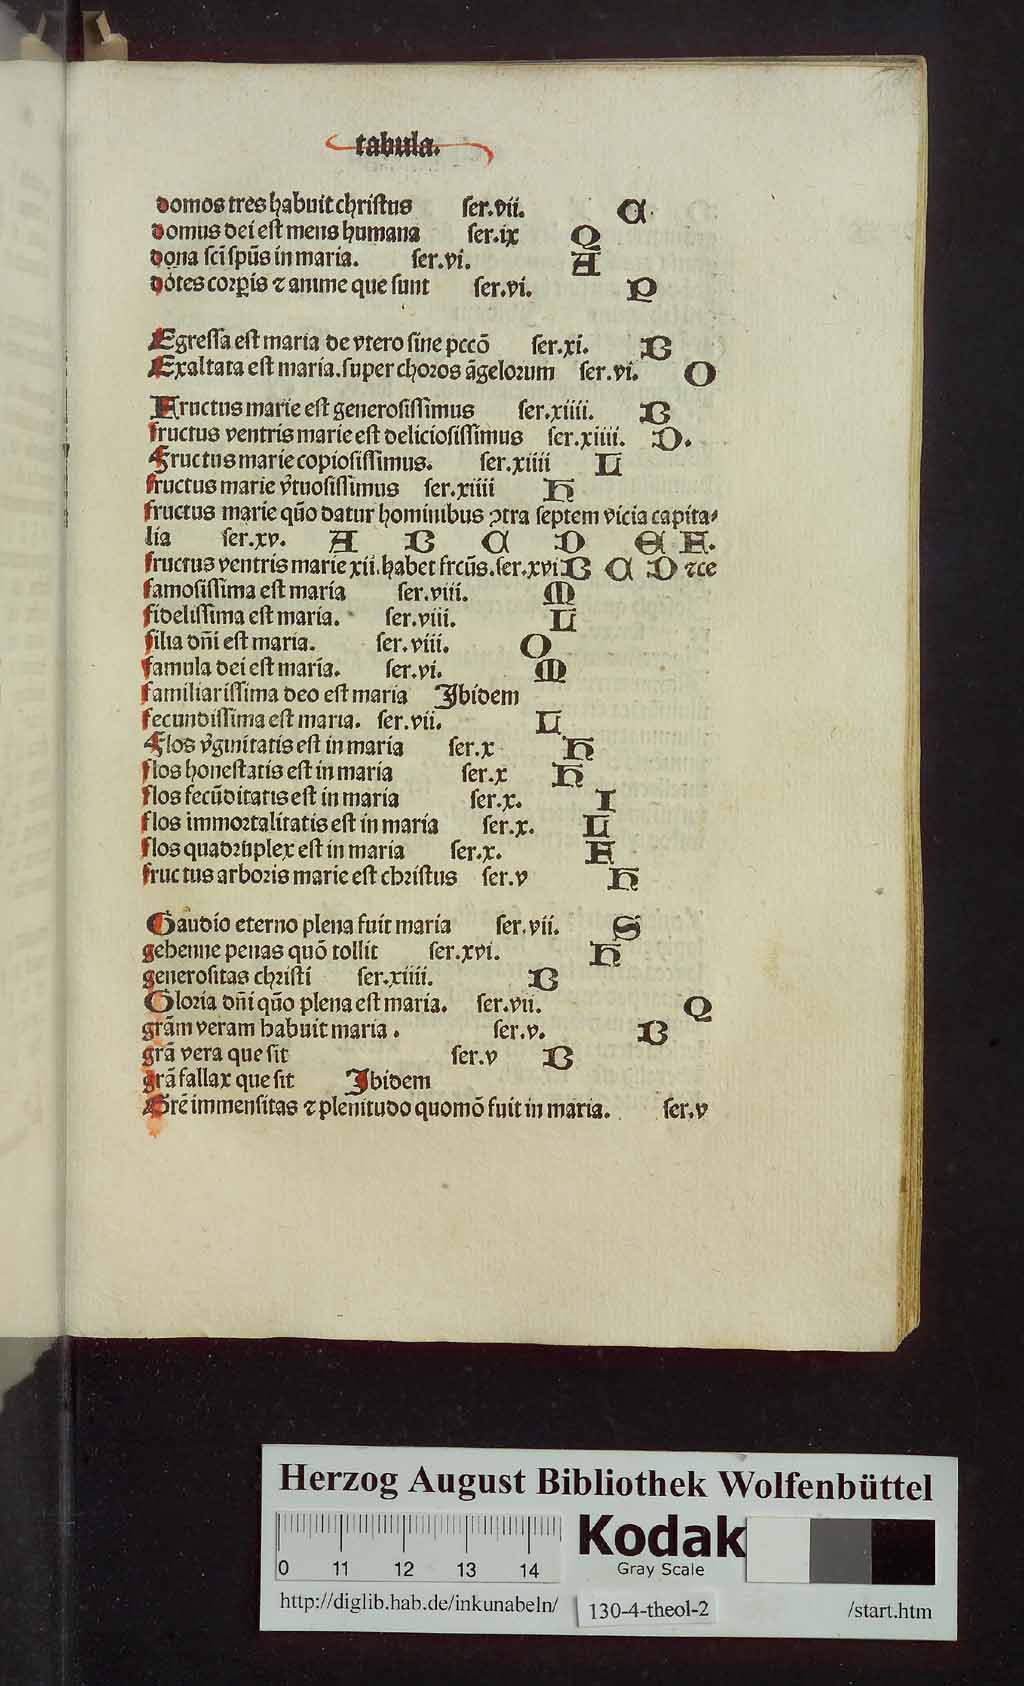 tabula.
domos tres habuit christus ser.vii. C
domus dei est mens humana ser.ix Q
dona scī spūs in maria. ser.vi. A
dotes corꝑis ⁊ anime que sunt ser.vi. P
Egressa est maria de vtero sine pccō ser.xi. B
Exaltata est maria.super choros āgelorum ser.vi. O
Fructus marie est generosissimus ser.xiiii. B
fructus ventris marie est deliciosissimus ser.xiiii. D.
Fructus marie copiosissimus. ser.xiiii L
fructus marie v̄tuosissimus ser.xiiii H
fructus marie quō datur hominibus ꝯtra septem vicia capita⸗
lia ser.xv. A B C D E F.
fructus ventris marie xii.habet frcūs.ser.xvi B C D ⁊ce
famosissima est maria ser.viii. M
fidelissima est maria. ser.viii. L
filia dn̄i est maria. ser.viii. O
famula dei est maria. ser.vi. M
familiarissima deo est maria Ibidem
fecundissima est maria. ser.vii. L
Flos v̄ginitatis est in maria ser.x H
flos honestatis est in maria ser.x H
flos fecūditatis est in maria ser.x. I
flos immortalitatis est in maria ser.x. L
flos quadruplex est in maria ser.x. F
fructus arboris marie est christus ser.v H
Gaudio eterno plena fuit maria ser.vii. S
gehenne penas quō tollit ser.xvi. H
generositas christi ser.xiiii. B
Gloria dn̄i quō plena est maria. ser.vii. Q
grām veram habuit maria . ser.v. B
grā vera que sit ser.v B
grā fallax que sit Ibidem
Grē immensitas ⁊ plenitudo quomō fuit in maria. ser.v
Herzog August Bibliothek Wolfenbüttel
0 11 12 13 14
Kodak
Gray Scale
http://diglib.hab.de/inkunabeln/ 130-4-theol-2 /start.htm